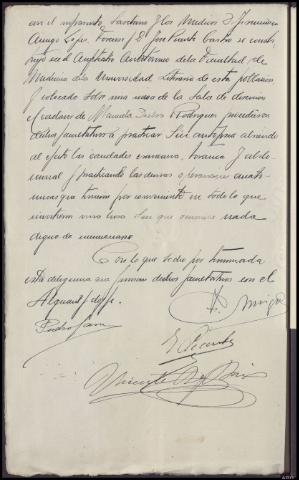 con el infrascrito Secretario y los Medicos D. Francisco
Amigo Lopez, Forense y D. Jose Puente Castro se constituyó
en el Anfiteatro Anatomico de la Facultad de
Medicina de la Universidad Literaria de esta poblacion
y colocado sobre una mesa de la Sala de
el cadaver de Manuela Rodriguez procedieron
dichos facultativos a practicar su autopsia abriendo
al efecto las cavidades craneana, toracica y abdominal
y practicando las demas operaciones anatomicas
que tuvieron por conveniente en todo lo que
invirtieron una hora sin que ocurriera nada
digno de mencionarse
Con lo que se dio por terminada
esta diligencia que firman dichos facultativos con el
Alguacil doy fe.
Amigo
Pedro
Vicente